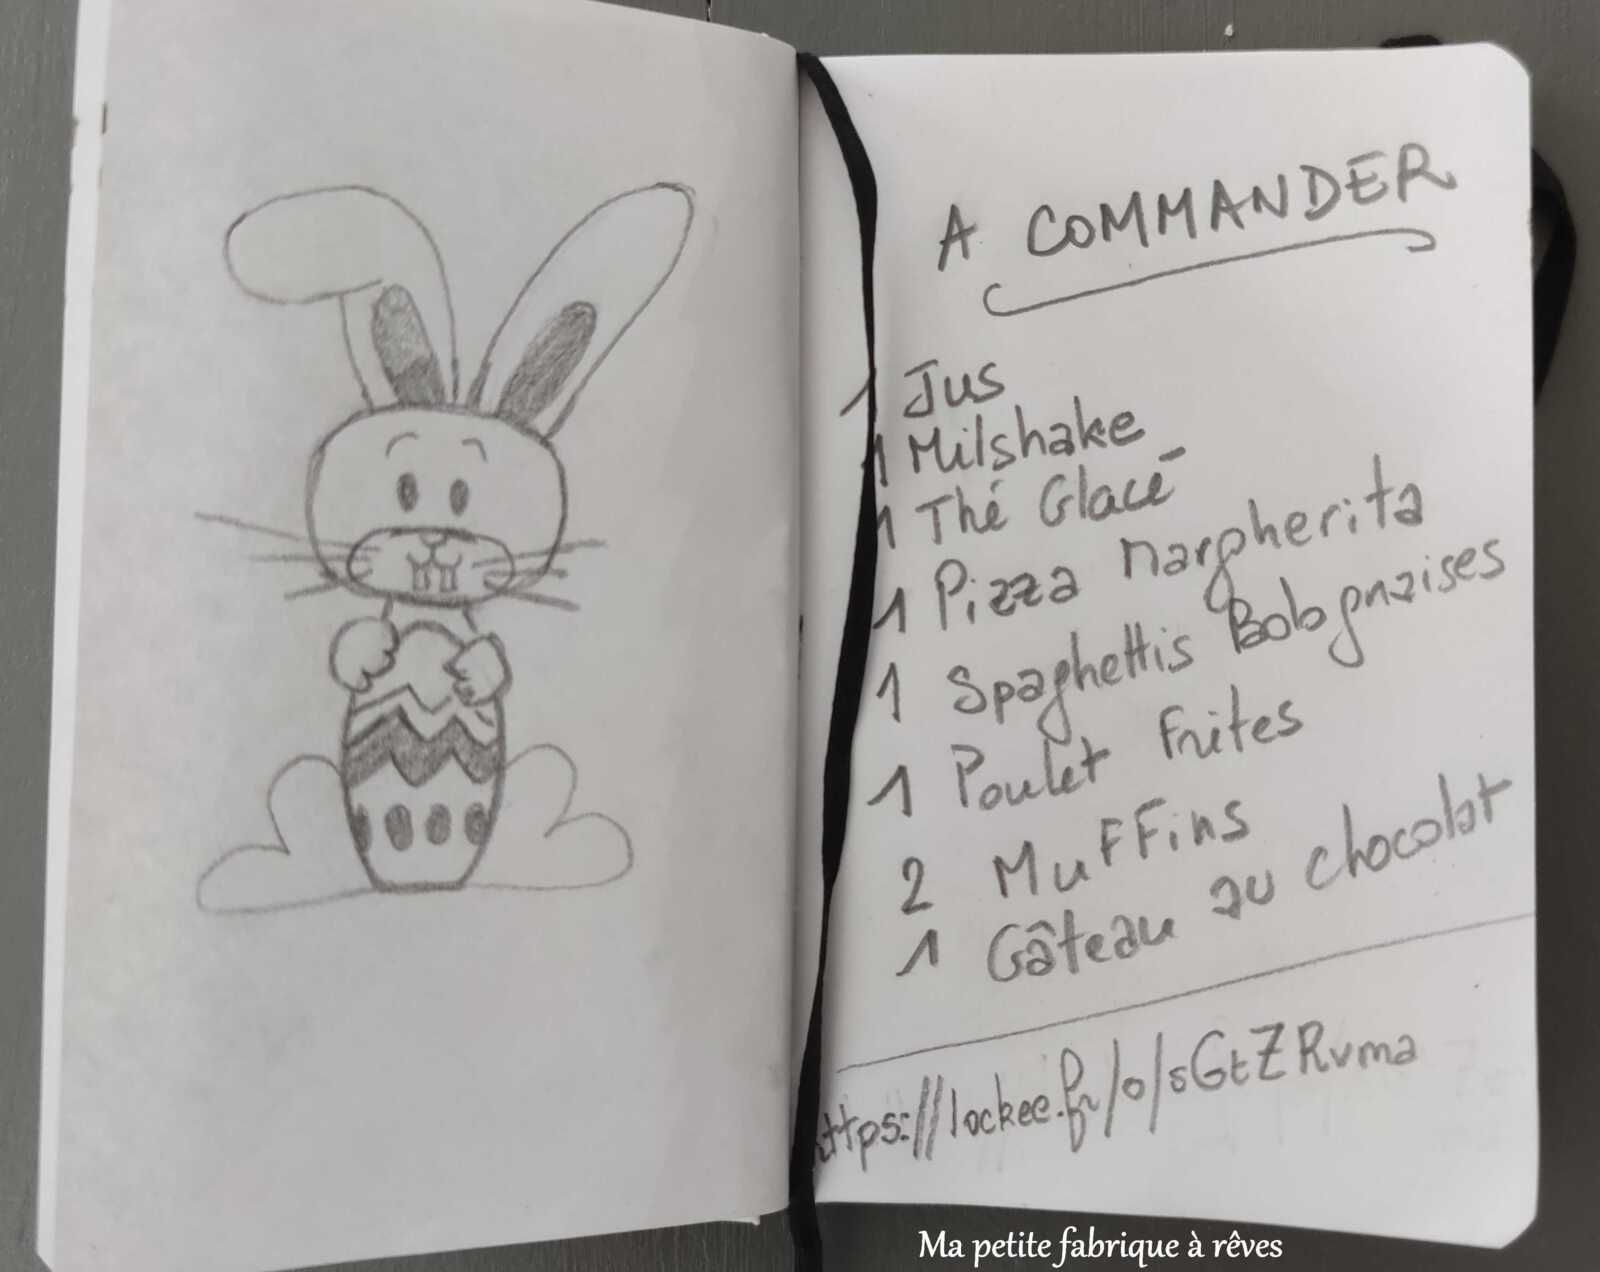 A COMMANDER
1 Jus
1 Milshake
1 Thé Glacé
1 Pizza Margherita
1 Spaghettis Bolognaises
1 Poulet Frites
2 Muffins
1 Gâteau au chocolat
https://lockee.fr/o/sGtZRvma
Ma petite fabrique à rêves